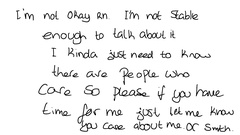 I'm not okay rn. I'm not stable
enough to talk about it
I kinda just need to know
there are people who
care so please if you have
time for me just let me know
you care about me or smth.